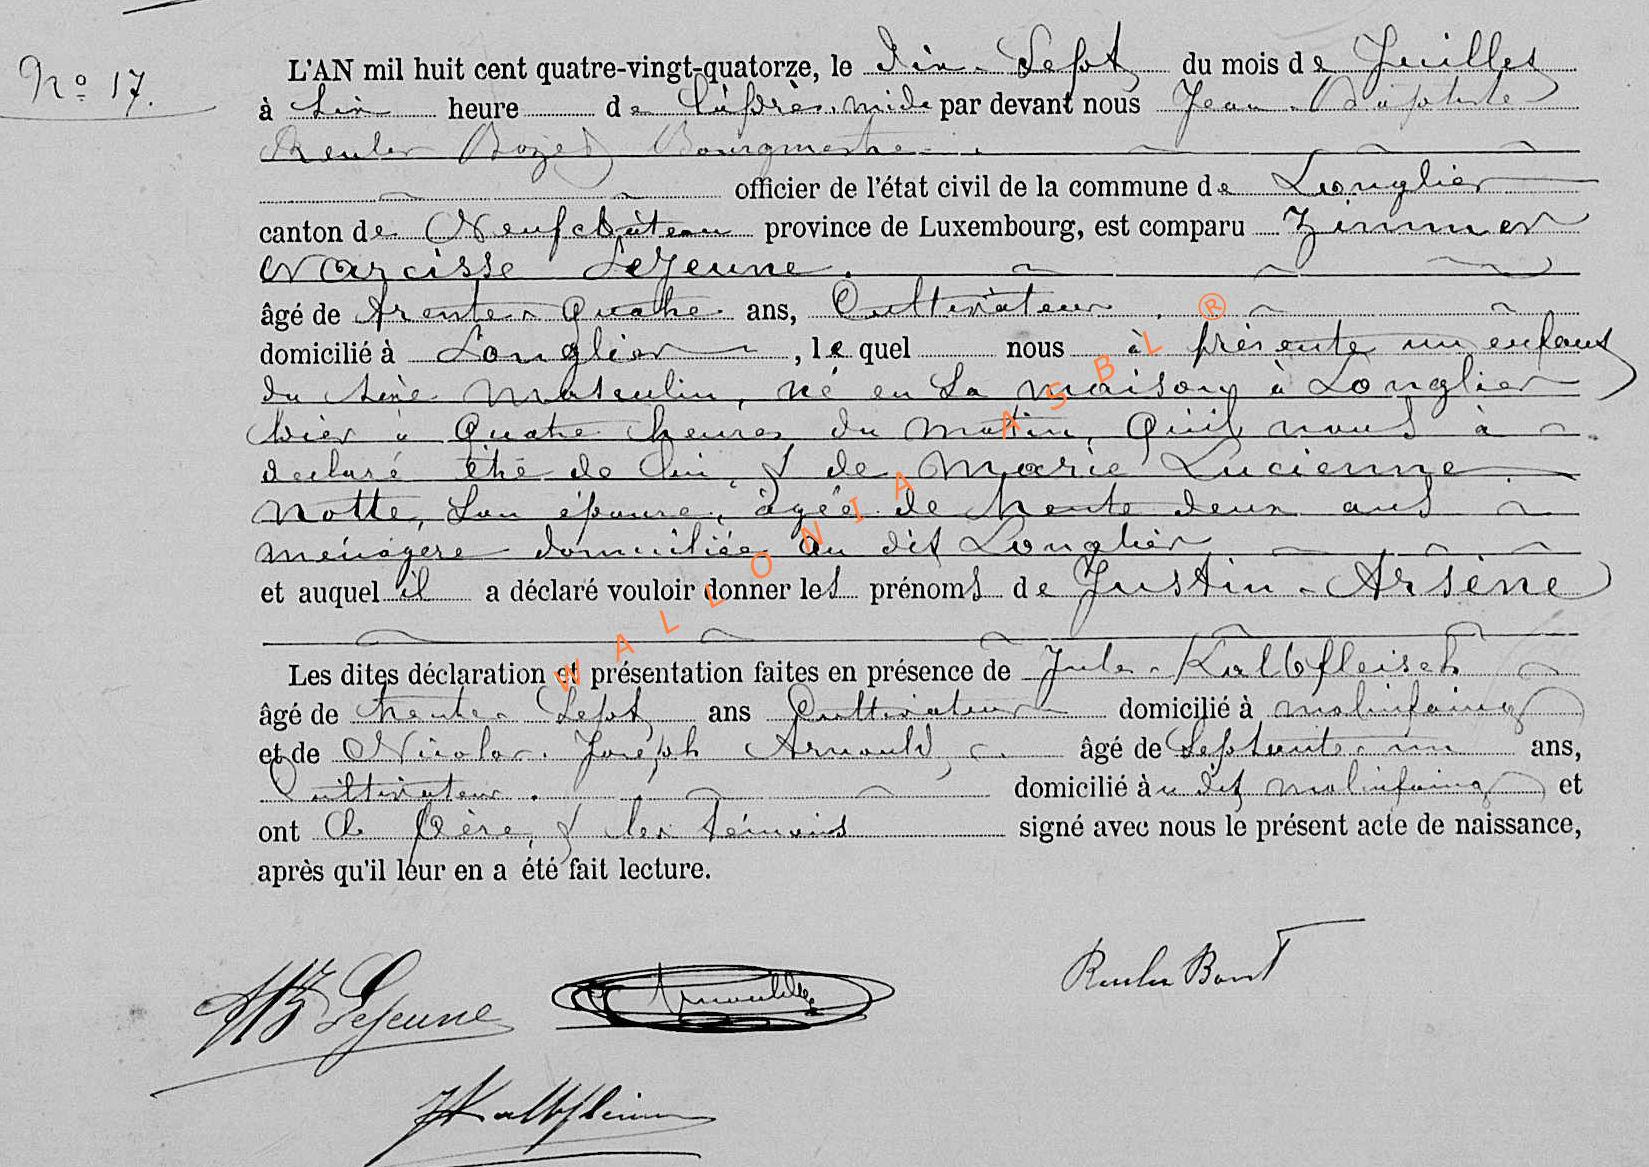 No 17.
L'AN mil huit cent quatre-vingt-quatorze, le dix-Sept du mois de Juillet
à Six heure de l'après-midi par devant nous Jean-Baptiste
Reuler Bourgmestre
officier de l'état civil de la commune de Longlier
canton de Neufchâteau province de Luxembourg, est comparu Zimmer
Narcisse LeJeune.
âgé de trente-Quatre ans, Cultivateur.
domicilié à Longlier, le quel nous à présenté un enfant
du sexe masculin, né en Sa maison à Longlier
hier à Quatre heures du matin, Qu'il nous à
déclaré être de lui, & de Marie Lucienne
Notte, Son épouse, âgée de trente deux ans
ménagère domiciliée au dit Longlier
et auquel il a déclaré vouloir donner les prénoms de Justin-Arsène
Les dites déclaration et présentation faites en présence de Jules Kalbfleisch
âgé de trente-Sept ans Cultivateur domicilié à molinfaing
et de Nicolas-Joseph Arnould, âgé de Septante-un ans,
Cultivateur. domicilié àu dit molinfaing et
ont le Père, & les témoins signé avec nous le présent acte de naissance,
après qu'il leur en a été fait lecture.
LeJeune Arnould Reuler
Kalbfleisch
WALLONIA ASBL ®